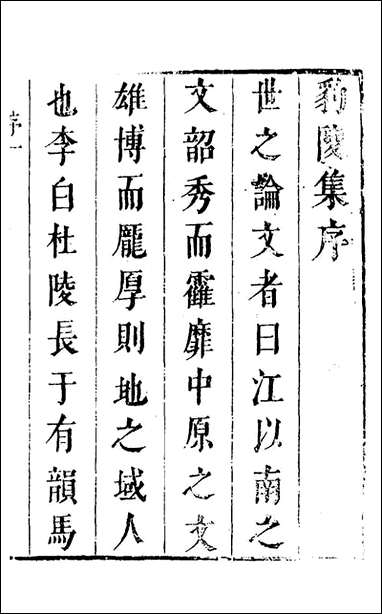 豹陵集序
世之論文者曰江以南之
文韶秀而霍靡中原之文
雄博而龐厚則地之域人
也李白杜陵長于有韻馬
序一